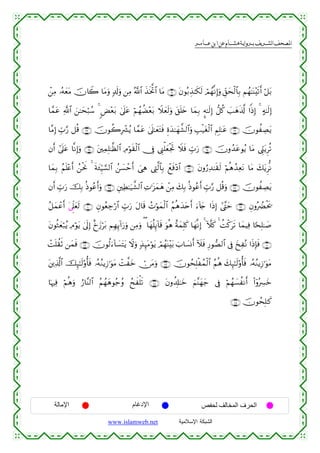 المصحف الشريف برواية هشام عن ابن عامر
بَلْ أَتَيْنَٰهُم بِٱلْحَقِّ وَإِنَّهُمْ لَكَٰذِبُونَ ۝ مَا ٱتَّخَذَ ٱللَّهُ مِن وَلَدٍ وَمَا كَانَ مَعَهُۥ مِنْ
إِلَٰهٍ ۚ إِذًا لَّذَهَبَ كُلُّ إِلَٰهٍۭ بِمَا خَلَقَ وَلَعَلَا بَعْضُهُمْ عَلَىٰ بَعْضٍ ۚ سُبْحَٰنَ ٱللَّهِ عَمَّا
يَصِفُونَ ۝ عَٰلِمِ ٱلْغَيْبِ وَٱلشَّهَٰدَةِ فَتَعَٰلَىٰ عَمَّا يُشْرِكُونَ ۝ قُل رَّبِّ إِمَّا
تُرِيَنِّى مَا يُوعَدُونَ ۝ رَبِّ فَلَا تَجْعَلْنِى فِى ٱلْقَوْمِ ٱلظَّٰلِمِينَ ۝ وَإِنَّا عَلَىٰ أَن
نُّرِيَكَ مَا نَعِدُهُمْ لَقَٰدِرُونَ ۝ ٱدْفَعْ بِٱلَّتِى هِىَ أَحْسَنُ ٱلسَّيِّئَةَ ۚ نَحْنُ أَعْلَمُ بِمَا
يَصِفُونَ ۝ وَقُل رَّبِّ أَعُوذُ بِكَ مِنْ هَمَزَٰتِ ٱلشَّيَٰطِينِ ۝ وَأَعُوذُ بِكَ رَبِّ أَن
يَحْضُرُونِ ۝ حَتَّىٰ إِذَا جَآءَ أَحَدَهُمُ ٱلْمَوْتُ قَالَ رَبِّ ٱرْجِعُونِ ۝ لَعَلِّىَ أَعْمَلُ
صَٰلِحًا فِيمَا تَرَكْتُ ۚ كَلَّآ ۚ إِنَّهَا كَلِمَةٌ هُوَ قَآئِلُهَا ۖ وَمِن وَرَآئِهِم بَرْزَخٌ إِلَىٰ يَوْمِ يُبْعَثُونَ
۝ فَإِذَا نُفِخَ فِى ٱلصُّورِ فَلَآ أَنسَابَ بَيْنَهُمْ يَوْمَئِذٍ وَلَا يَتَسَآءَلُونَ ۝ فَمَن ثَقُلَتْ
مَوَٰزِينُهُۥ فَأُو۟لَٰٓئِكَ هُمُ ٱلْمُفْلِحُونَ ۝ وَمَنْ خَفَّتْ مَوَٰزِينُهُۥ فَأُو۟لَٰٓئِكَ ٱلَّذِينَ
خَسِرُوٓا۟ أَنفُسَهُمْ فِى جَهَنَّمَ خَٰلِدُونَ ۝ تَلْفَحُ وُجُوهَهُمُ ٱلنَّارُ وَهُمْ فِيهَا
كَٰلِحُونَ ۝
الحرف المخالف لحفص الإدغام الإمالة
الشبكة الإسلامية www.islamweb.net